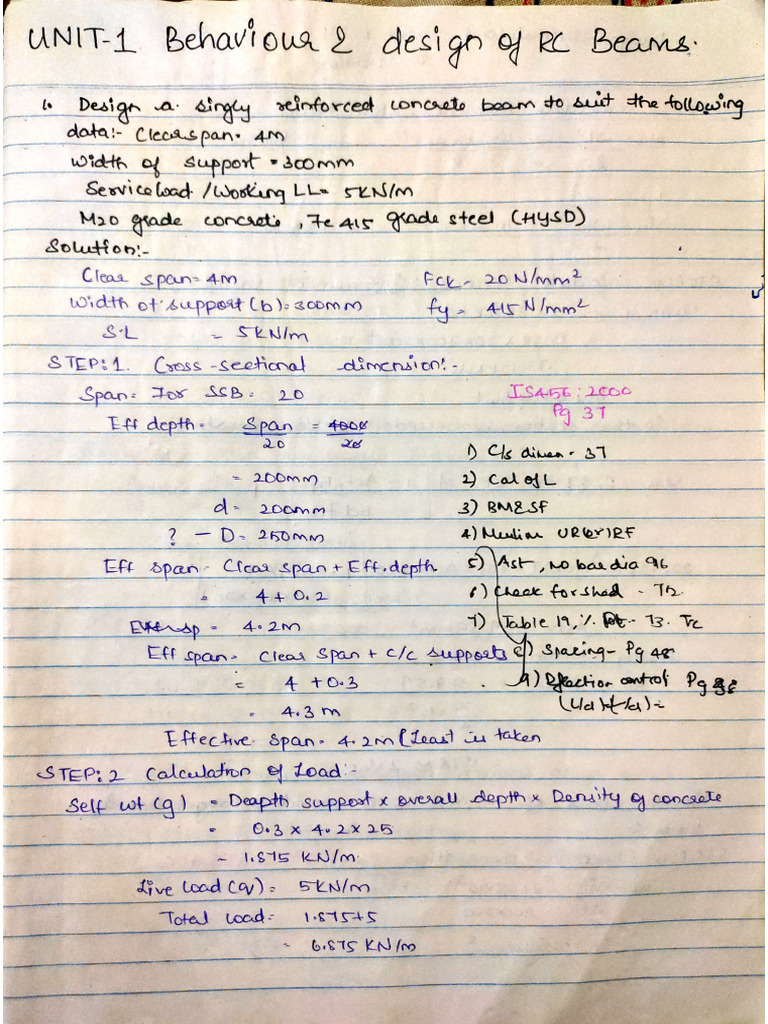 UNIT-1 Behaviour & design of RC Beams.
1. Design a singly reinforced concrete beam to suit the following
data:- Clear span = 4m
Width of support = 300mm
Service load / Working LL = 5KN/m
M20 grade concrete, Fe 415 grade steel (HYSD)
Solution:-
Clear span = 4m
Fck = 20 N/mm²
Width of support (b) = 300mm
fy = 415 N/mm²
S.L = 5KN/m
STEP:1. Cross-sectional dimension:-
Span = For SSB = 20
IS456:2000
Pg 37
Eff depth = Span/20 = 4000/20
= 200mm
d = 200mm
? - D = 250mm
Eff span = Clear span + Eff. depth
= 4 + 0.2
Eff sp = 4.2m
Eff span = Clear span + c/c supports
= 4 + 0.3
= 4.3 m
Effective span = 4.2m (Least is taken
1) C/s dimen - 37
2) Cal of L
3) BM & SF
4) Mulim URF
5) Ast, No bar dia 96
6) Check for shed - 72
7) Table 19, %. - 73. Tc
8) Spacing - Pg 48
9) Dflection control Pg
(L/d)
STEP:2 Calculation of Load:-
Self wt (g) = Deapth support x overall depth x Density of concrete
= 0.3 x 4.2 x 25
= 1.875 KN/m
Live load (q) = 5KN/m
Total load = 1.875+5
= 6.875 KN/m